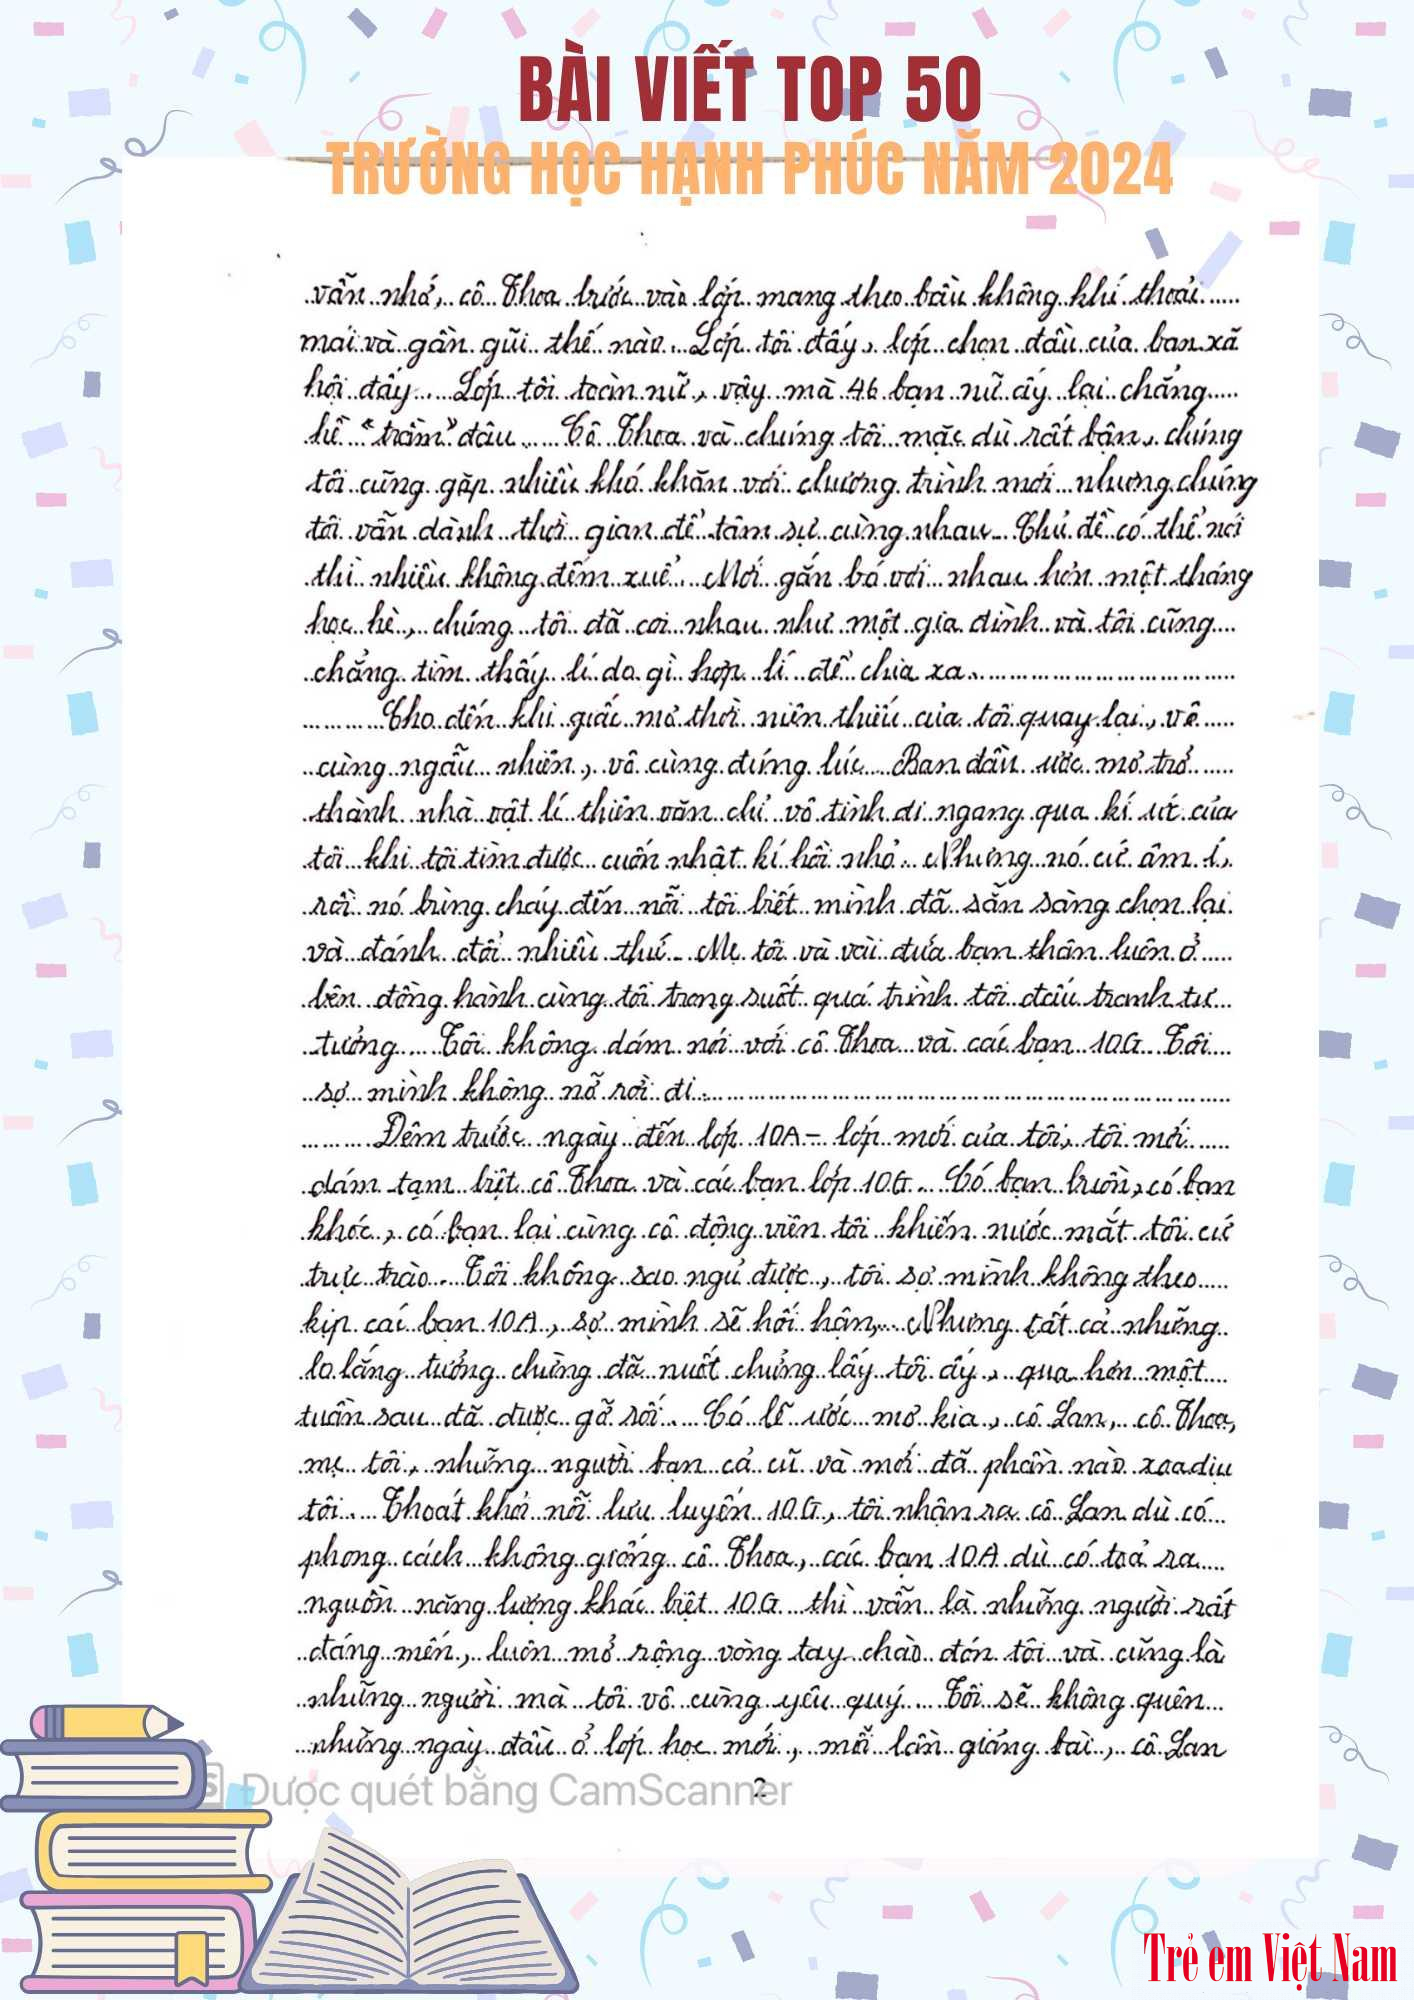 BÀI VIẾT TOP 50
TRƯỜNG HỌC HẠNH PHÚC NĂM 2024
vẫn nhớ, cô Thoa bước vào lớp mang theo bầu không khí thoải
mái và gần gũi thế nào. Lớp tôi đấy, lớp chọn đầu của ban xã
hội đấy. Lớp tôi toàn nữ, vậy mà 46 bạn nữ ấy lại chẳng
hề "trầm" đâu. Cô Thoa và chúng tôi mặc dù rất bận, chúng
tôi cũng gặp nhiều khó khăn với chương trình mới nhưng chúng
tôi vẫn dành thời gian để tâm sự cùng nhau. Chủ đề có thể nói
thì nhiều không đếm xuể. Mới gắn bó với nhau hơn một tháng
học hè, chúng tôi đã coi nhau như một gia đình và tôi cũng
chẳng tìm thấy lí do gì hợp lí để chia xa.
Cho đến khi giấc mơ thời niên thiếu của tôi quay lại, vô
cùng ngẫu nhiên, vô cùng đúng lúc. Ban đầu ước mơ trở
thành nhà vật lí thiên văn chỉ vô tình đi ngang qua kí ức của
tôi khi tôi tìm được cuốn nhật kí hồi nhỏ. Nhưng nó cứ âm ỉ,
rồi nó bùng cháy đến nỗi tôi biết mình đã sẵn sàng chọn lại
và đánh đổi nhiều thứ. Mẹ tôi và vài đứa bạn thân luôn ở
bên đồng hành cùng tôi trong suốt quá trình tôi đấu tranh tư
tưởng. Tôi không dám nói với cô Thoa và các bạn 10G. Tôi
sợ mình không nỡ rời đi.
Đêm trước ngày đến lớp 10A - lớp mới của tôi, tôi mới
dám tạm biệt cô Thoa và các bạn lớp 10G. Có bạn buồn, có bạn
khóc, có bạn lại cùng cô động viên tôi khiến nước mắt tôi cứ
trực trào. Tôi không sao ngủ được, tôi sợ mình không theo
kịp các bạn 10A, sợ mình sẽ hối hận,... Nhưng tất cả những
lo lắng tưởng chừng đã nuốt chửng lấy tôi ấy, qua hơn một
tuần sau đã được gỡ rối. Có lẽ ước mơ kia, cô Lan, cô Thoa,
mẹ tôi, những người bạn cả cũ và mới đã phần nào xoa dịu
tôi. Thoát khỏi nỗi lưu luyến 10G, tôi nhận ra cô Lan dù có
phong cách không giống cô Thoa, các bạn 10A dù có toả ra
nguồn năng lượng khác biệt 10G thì vẫn là những người rất
đáng mến, luôn mở rộng vòng tay chào đón tôi và cũng là
những người mà tôi vô cùng yêu quý. Tôi sẽ không quên
những ngày đầu ở lớp học mới, mỗi lần giảng bài, cô Lan
2
Được quét bằng CamScanner
Trẻ em Việt Nam